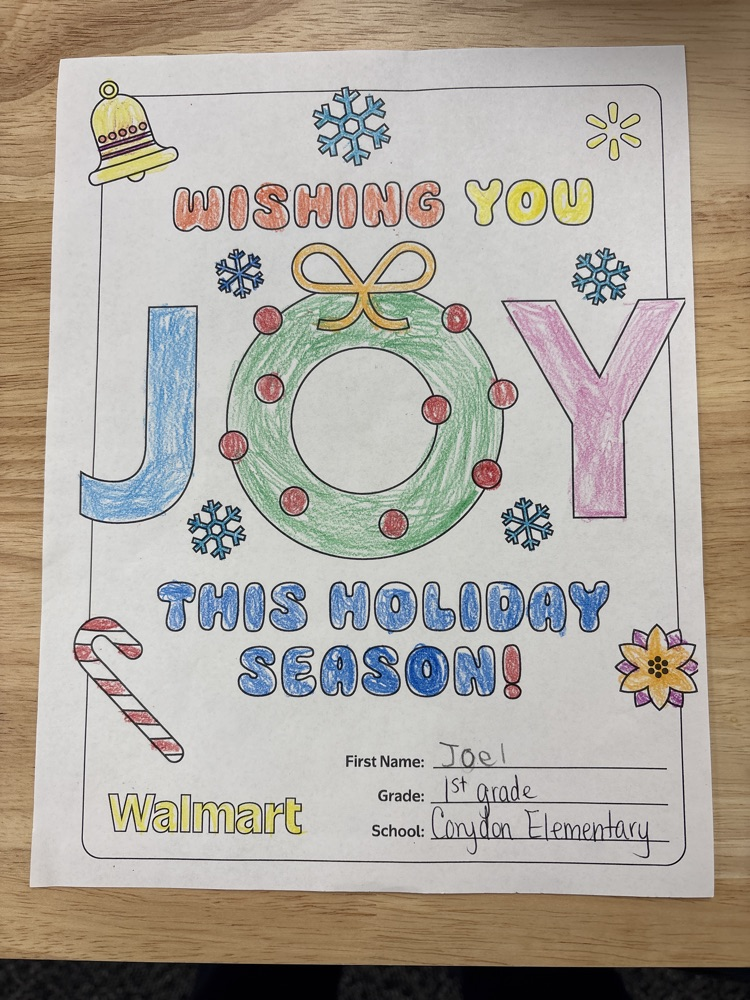 WISHING YOU
JOY
THIS HOLIDAY
SEASON!
First Name: Joel
Grade: 1st grade
School: Corydon Elementary
Walmart